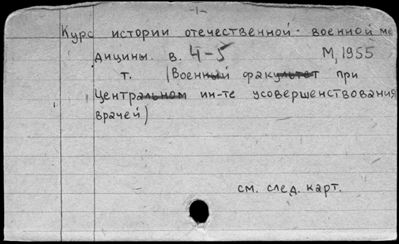 -1-
Курс истории отечественной военной ме
дицины. в. 4-5 М, 1955
т. (Военный факультет при
Центральном ин-те усовершенствования
врачей)
см. след. карт.